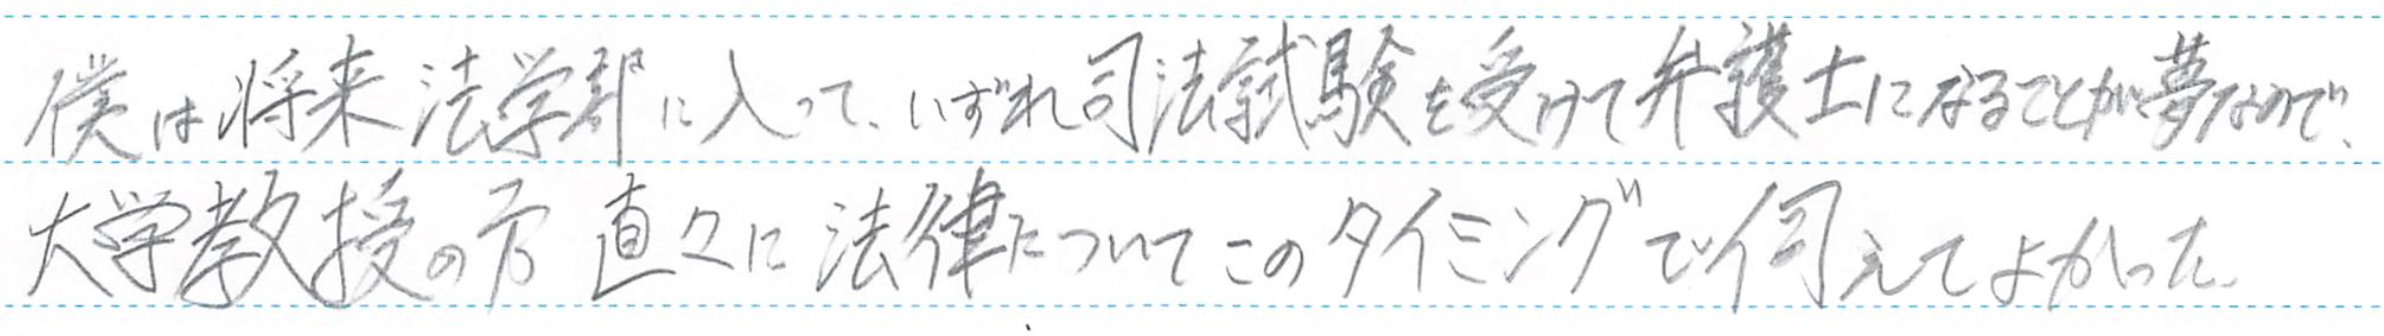 僕は将来法学部に入って、いずれ司法試験を受けて弁護士になることが夢なので、
大学教授の方直々に法律についてこのタイミングで伺えてよかった。